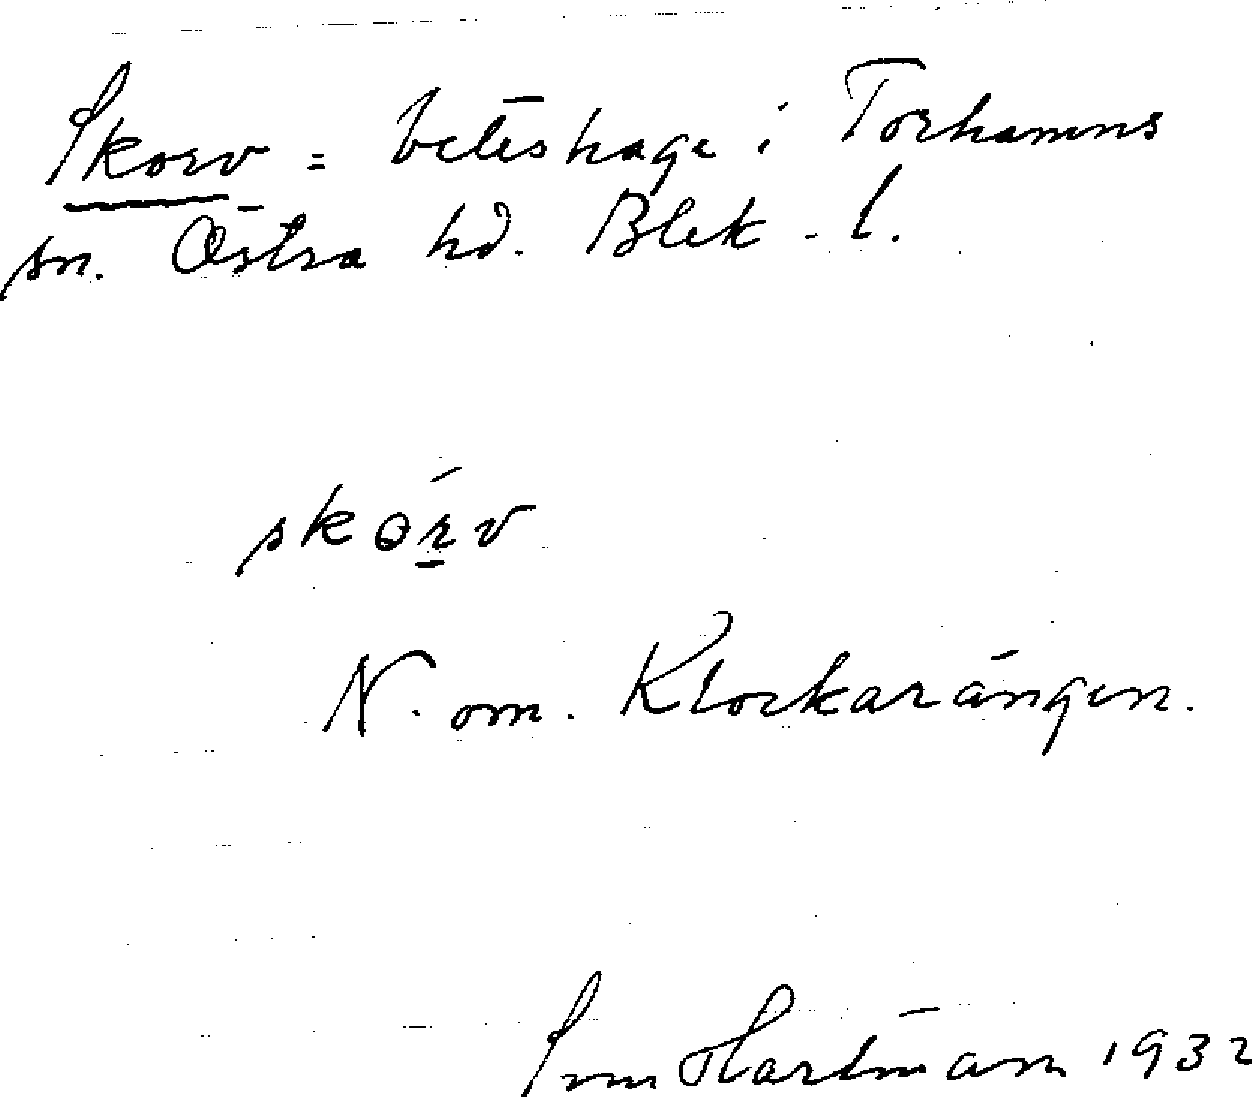 Skorv = beteshage i Torhamns
sn. Östra hd. Blek. l.
skɵrv
N. om. Klockarängen.
Hartman 1932